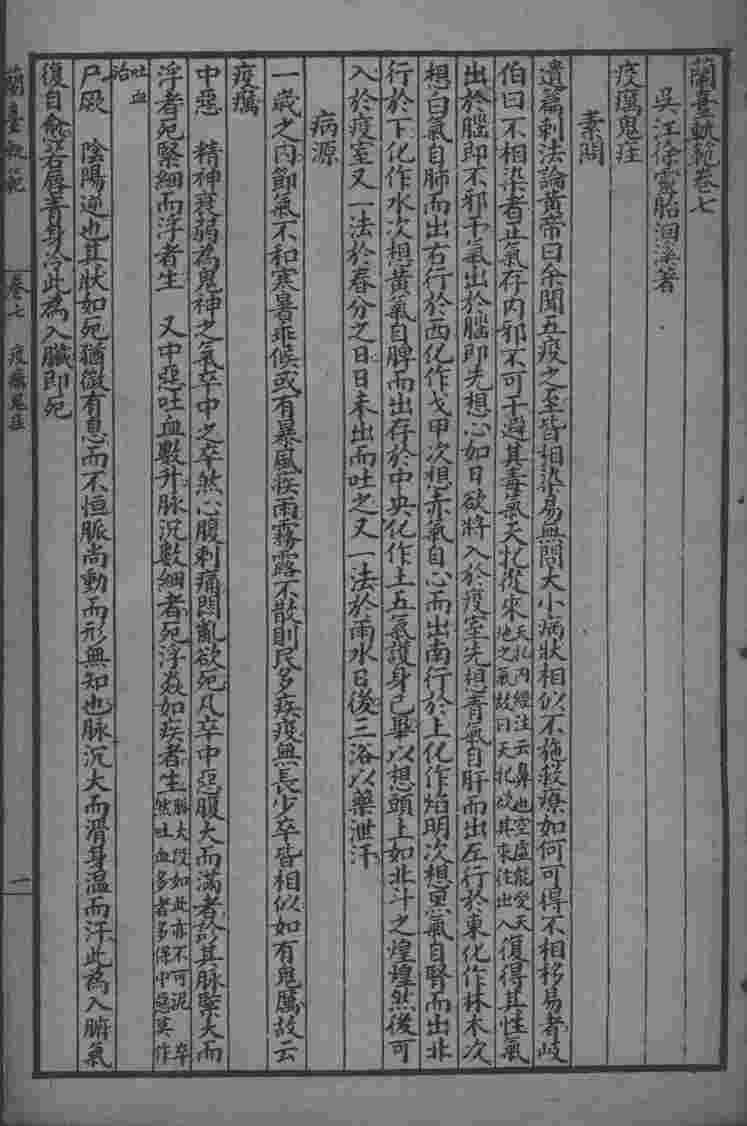 蘭臺軌範卷七
吳江徐靈胎洄溪著
疫癘鬼疰
素問
遺篇刺法論黃帝曰余聞五疫之至皆相染易無問大小病狀相似不施救療如何可得不相移易者岐
伯曰不相染者正氣存內邪不可干避其毒氣天牝從來天牝內經注云鼻也空虛能受天地之氣故曰天牝欲其來往出入復得其性氣
出於腦即不邪干氣出於腦即先想心如日欲將入於疫室先想青氣自肝而出左行於東化作林木次
想白氣自肺而出右行於西化作戈甲次想赤氣自心而出南行於上化作焰明次想黑氣自腎而出北
行於下化作水次想黃氣自脾而出存於中央化作土五氣護身已畢以想頭上如北斗之煌煌然後可
入於疫室又一法於春分之日日未出而吐之又一法於雨水日後三浴以藥泄汗
病源
一歲之內節氣不和寒暑乖候或有暴風疾雨霧露不散則民多疾疫無長少卒皆相似如有鬼厲故云
疫癘
中惡　精神衰弱為鬼神之氣卒中之卒然心腹刺痛悶亂欲死凡卒中惡腹大而滿者診其脉緊大而
浮者死緊細而浮者生　又中惡吐血數升脉沉數細者死浮焱如疾者生脉大段如此亦不可泥　卒然吐血多者多係中惡莫作
吐血治
尸厥　陰陽逆也其狀如死猶微有息而不恒脈尚動而形無知也脉沉大而滑身溫而汗此為入腑氣
復自愈若唇青身冷此為入臟即死
蘭臺軌範
卷七　疫癘鬼疰
一